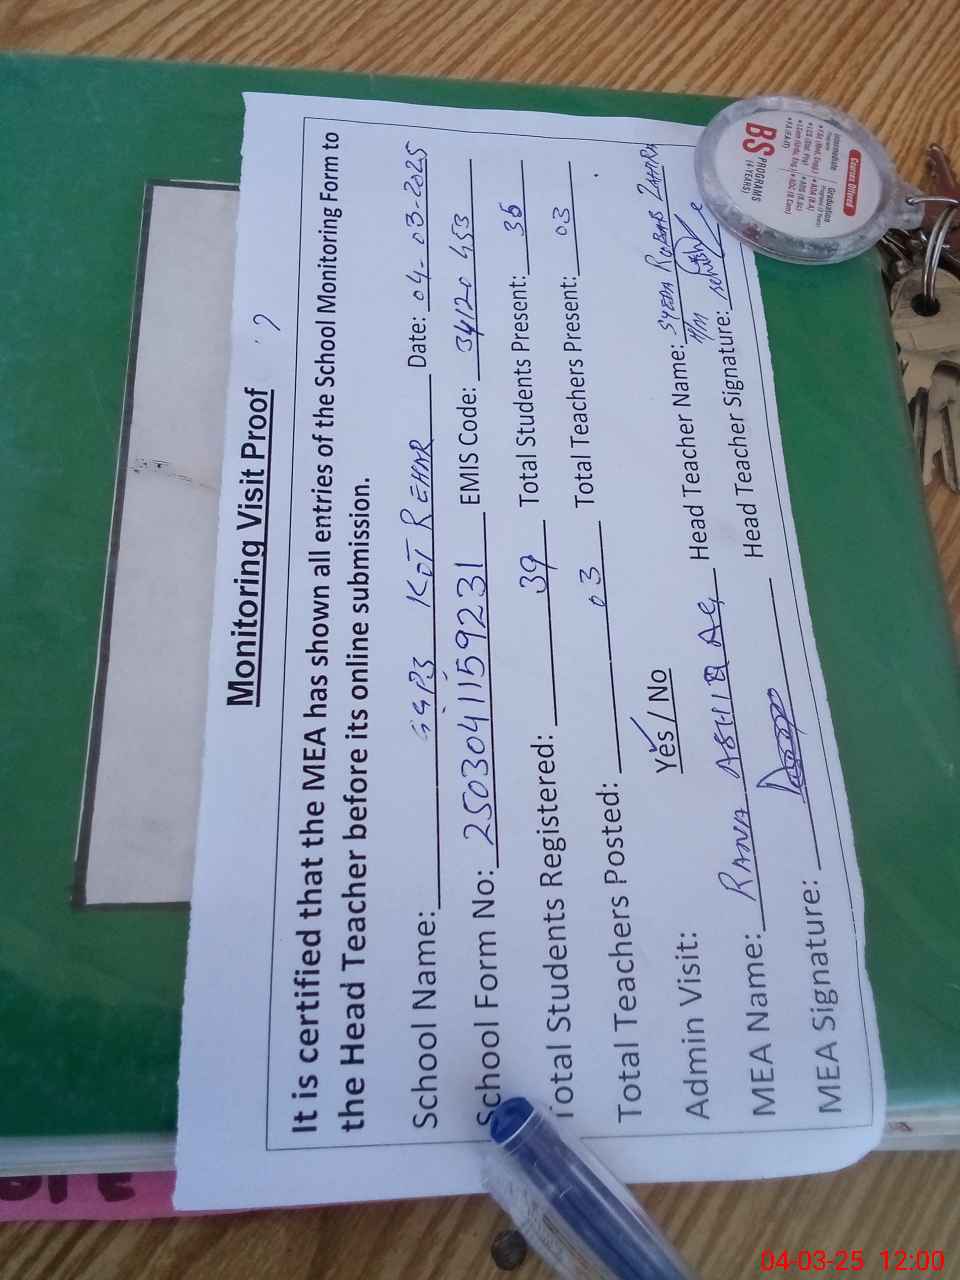 Monitoring Visit Proof
It is certified that the MEA has shown all entries of the School Monitoring Form to
the Head Teacher before its online submission.
School Name: GGPS KOT REHAR Date: 04-03-2025
School Form No: 2503041159231 EMIS Code: 34120453
Total Students Registered: 39 Total Students Present: 36
Total Teachers Posted: 03 Total Teachers Present: 03
Admin Visit: Yes / No
MEA Name: RANA Head Teacher Name: SYEDA RUBAB ZAHRA
H/M
MEA Signature: Head Teacher Signature:
Courses Offered
Intermediate
Graduation
BS
PROGRAMS
(4-YEARS)
04-03-25 12:00